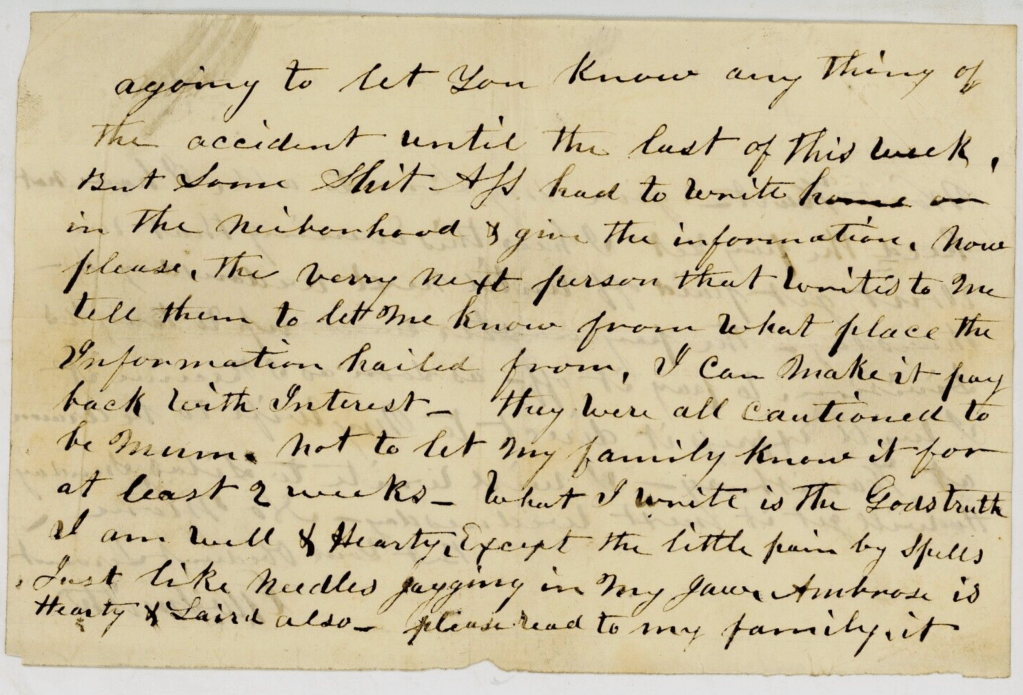 agoing to let You Know any thing of
the accident until the last of this week.
But Some Shit Ass had to write home on
in the neiborhood & give the information. Now
please, the verry next person that writes to Me
tell them to let Me know from what place the
Information hailed from, I Can Make it pay
back with Interest_ they were all cautioned to
be Mum. not to let My family know it for
at least 2 weeks_ What I write is the Gods truth
I am well & Hearty, Except the little pain by Spells
Just like Needles jagging in My Jaw. Ambrose is
Hearty & Laird also_ please read to my family, it